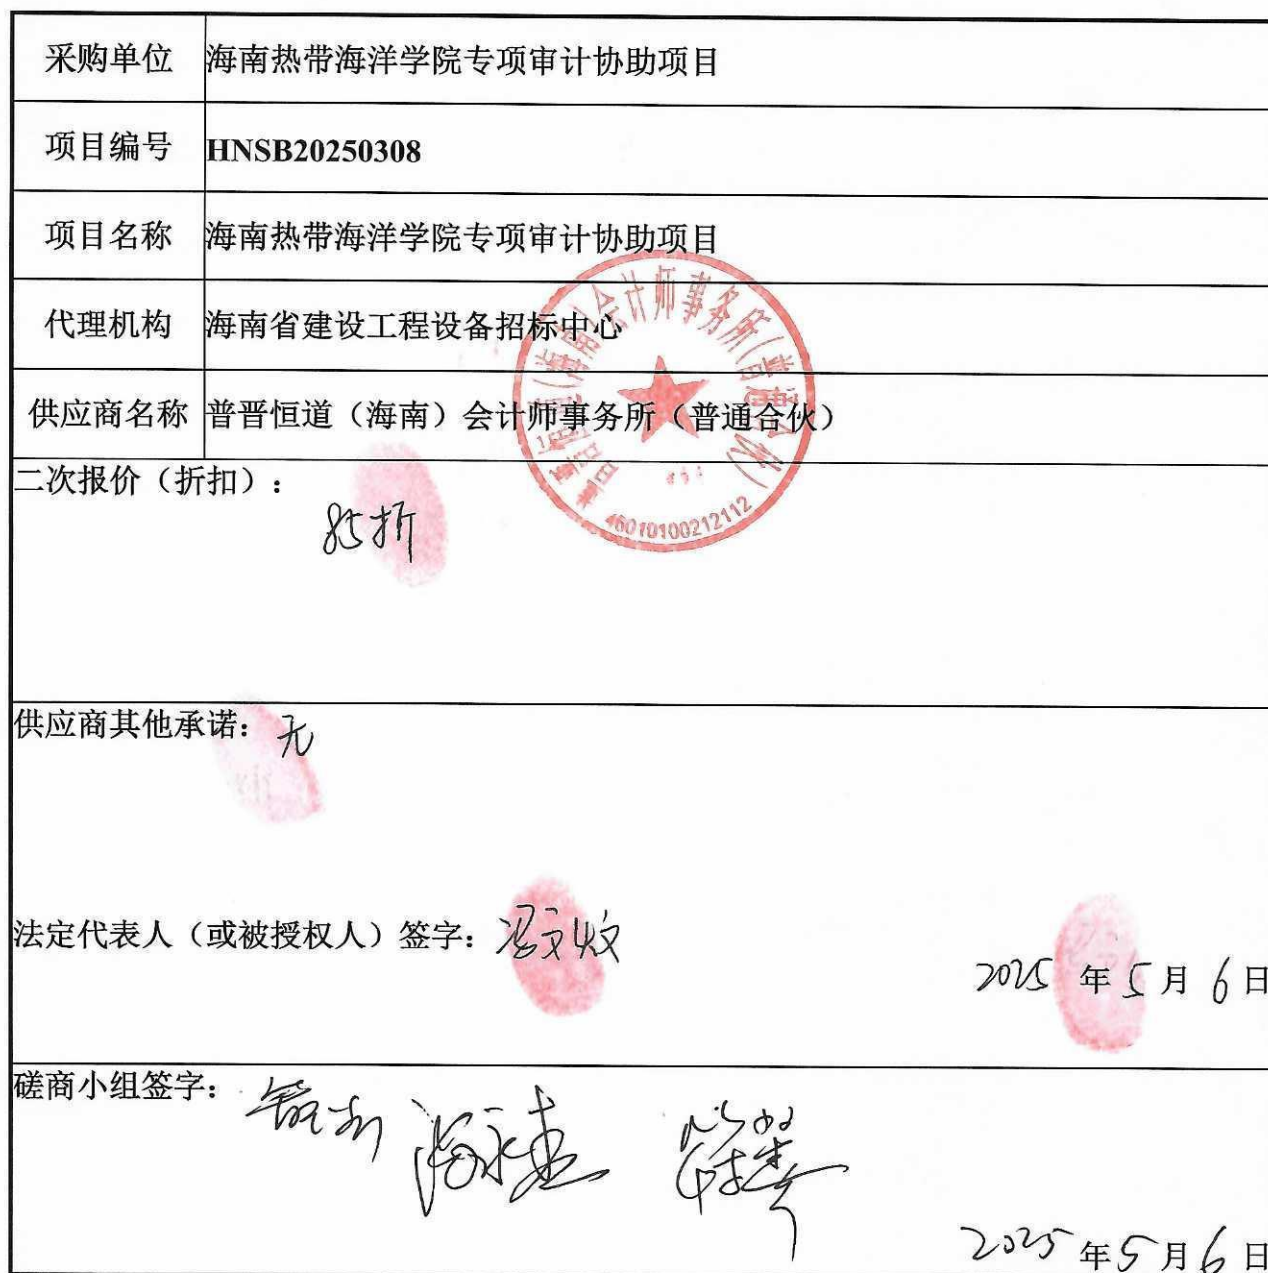 采购单位 海南热带海洋学院专项审计协助项目
项目编号 HNSB20250308
项目名称 海南热带海洋学院专项审计协助项目
代理机构 海南省建设工程设备招标中心
供应商名称 普晋恒道（海南）会计师事务所（普通合伙）
普晋恒道(海南)会计师事务所(普通合伙)
46010100212112
二次报价（折扣）：
85折
供应商其他承诺：无
法定代表人（或被授权人）签字：冯文
2025年5月6日
磋商小组签字：
2025年5月6日